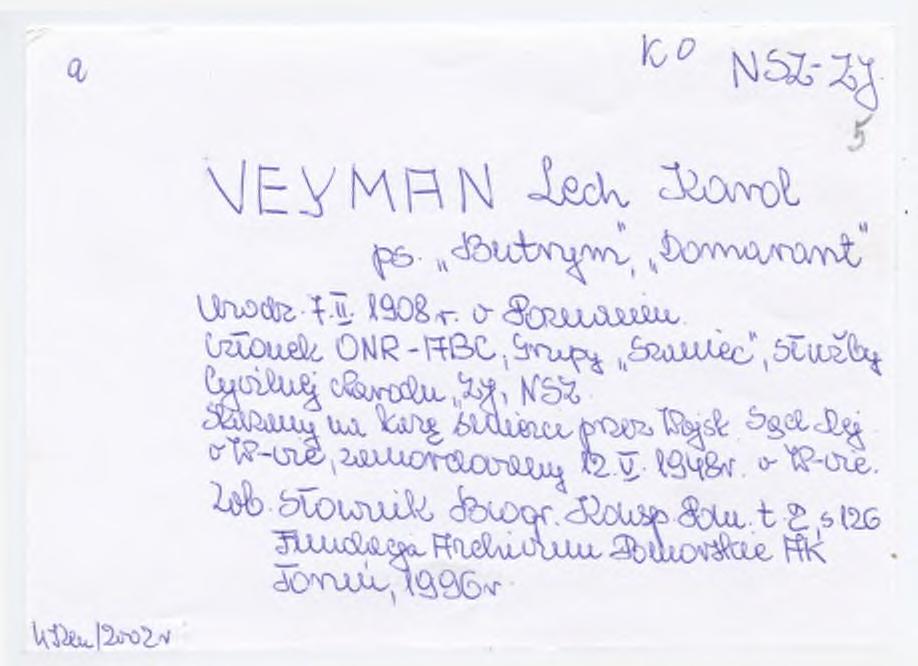 a
K O NSZ-ZJ
5
VEYMAN Lech Karol
ps. „Butrym", „Domarant"
Urodz. 7.II. 1908 r. w Poznaniu.
Członek ONR-ABC, Grupy „Szaniec", Służby
Cywilnej Narodu, ZJ, NSZ.
Skazany na karę śmierci przez Wojsk. Sąd Rej.
w W-wie, zamordowany 12.V. 1948r. w W-wie.
Zob. Słownik Biogr. Konsp. Pom. t. 2, s 126
Fundacja Archiwum Pomorskie AK
Toruń, 1996r
/2002r